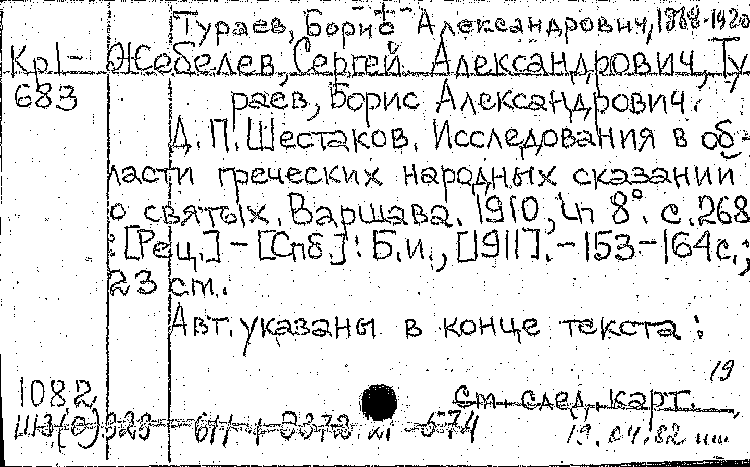 Тураев, Борис Александрович, 1868-1920
Кр1- Жебелев, Сергей Александрович, Ту
683 раев, Борис Александрович.
Д. П. Шестаков. Исследования в об-
ласти греческих народных сказаний
о святых. Варшава. 1910, in 8°. с. 268
: [Рец.] - [Спб.]: Б.и., [1911]. - 153-164 с.;
23 см.
Авт. указаны в конце текста :
19
1082 см. след. карт.
19.04.82